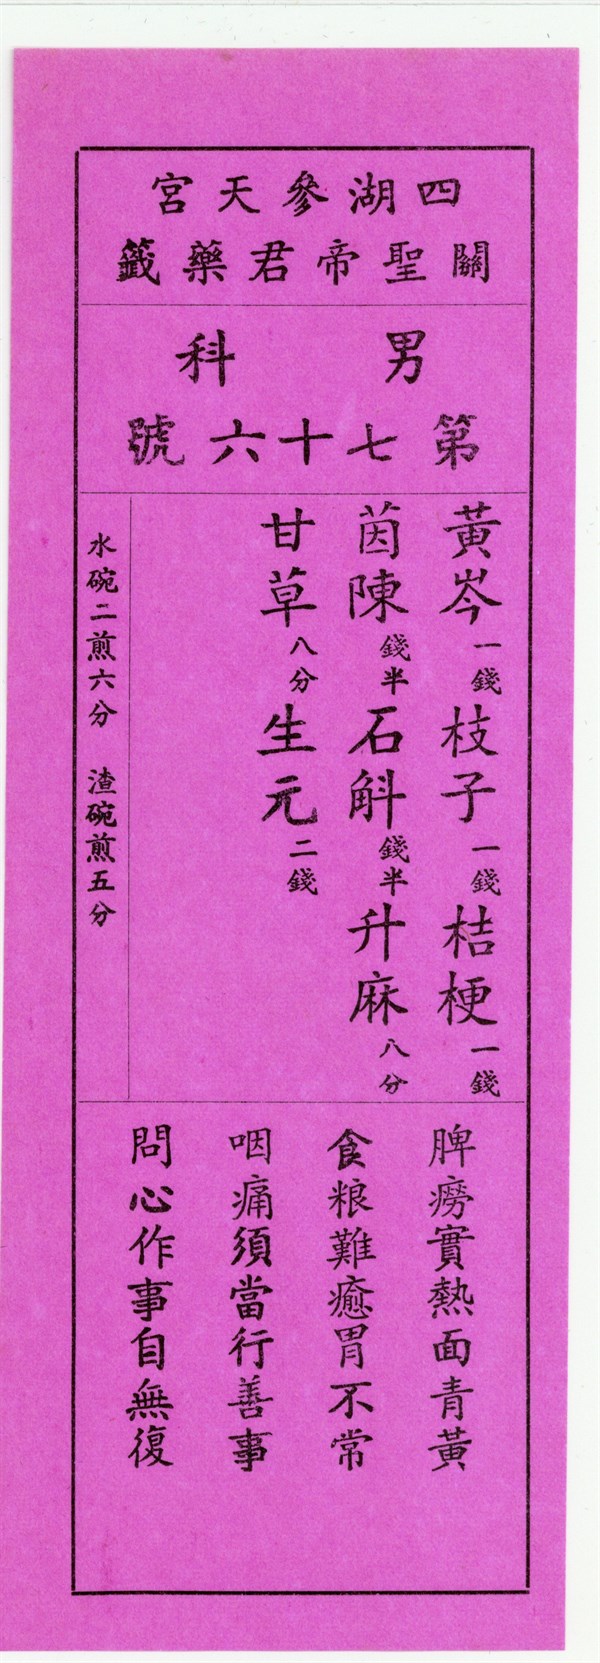 四湖參天宮
關聖帝君藥籤
男科
第七十六號
黃岑一錢枝子一錢桔梗一錢
茵陳錢半石斛錢半升麻八分
甘草八分生元二錢
水碗二煎六分 渣碗煎五分
脾癆實熱面青黃
食粮難癒胃不常
咽痛須當行善事
問心作事自無復